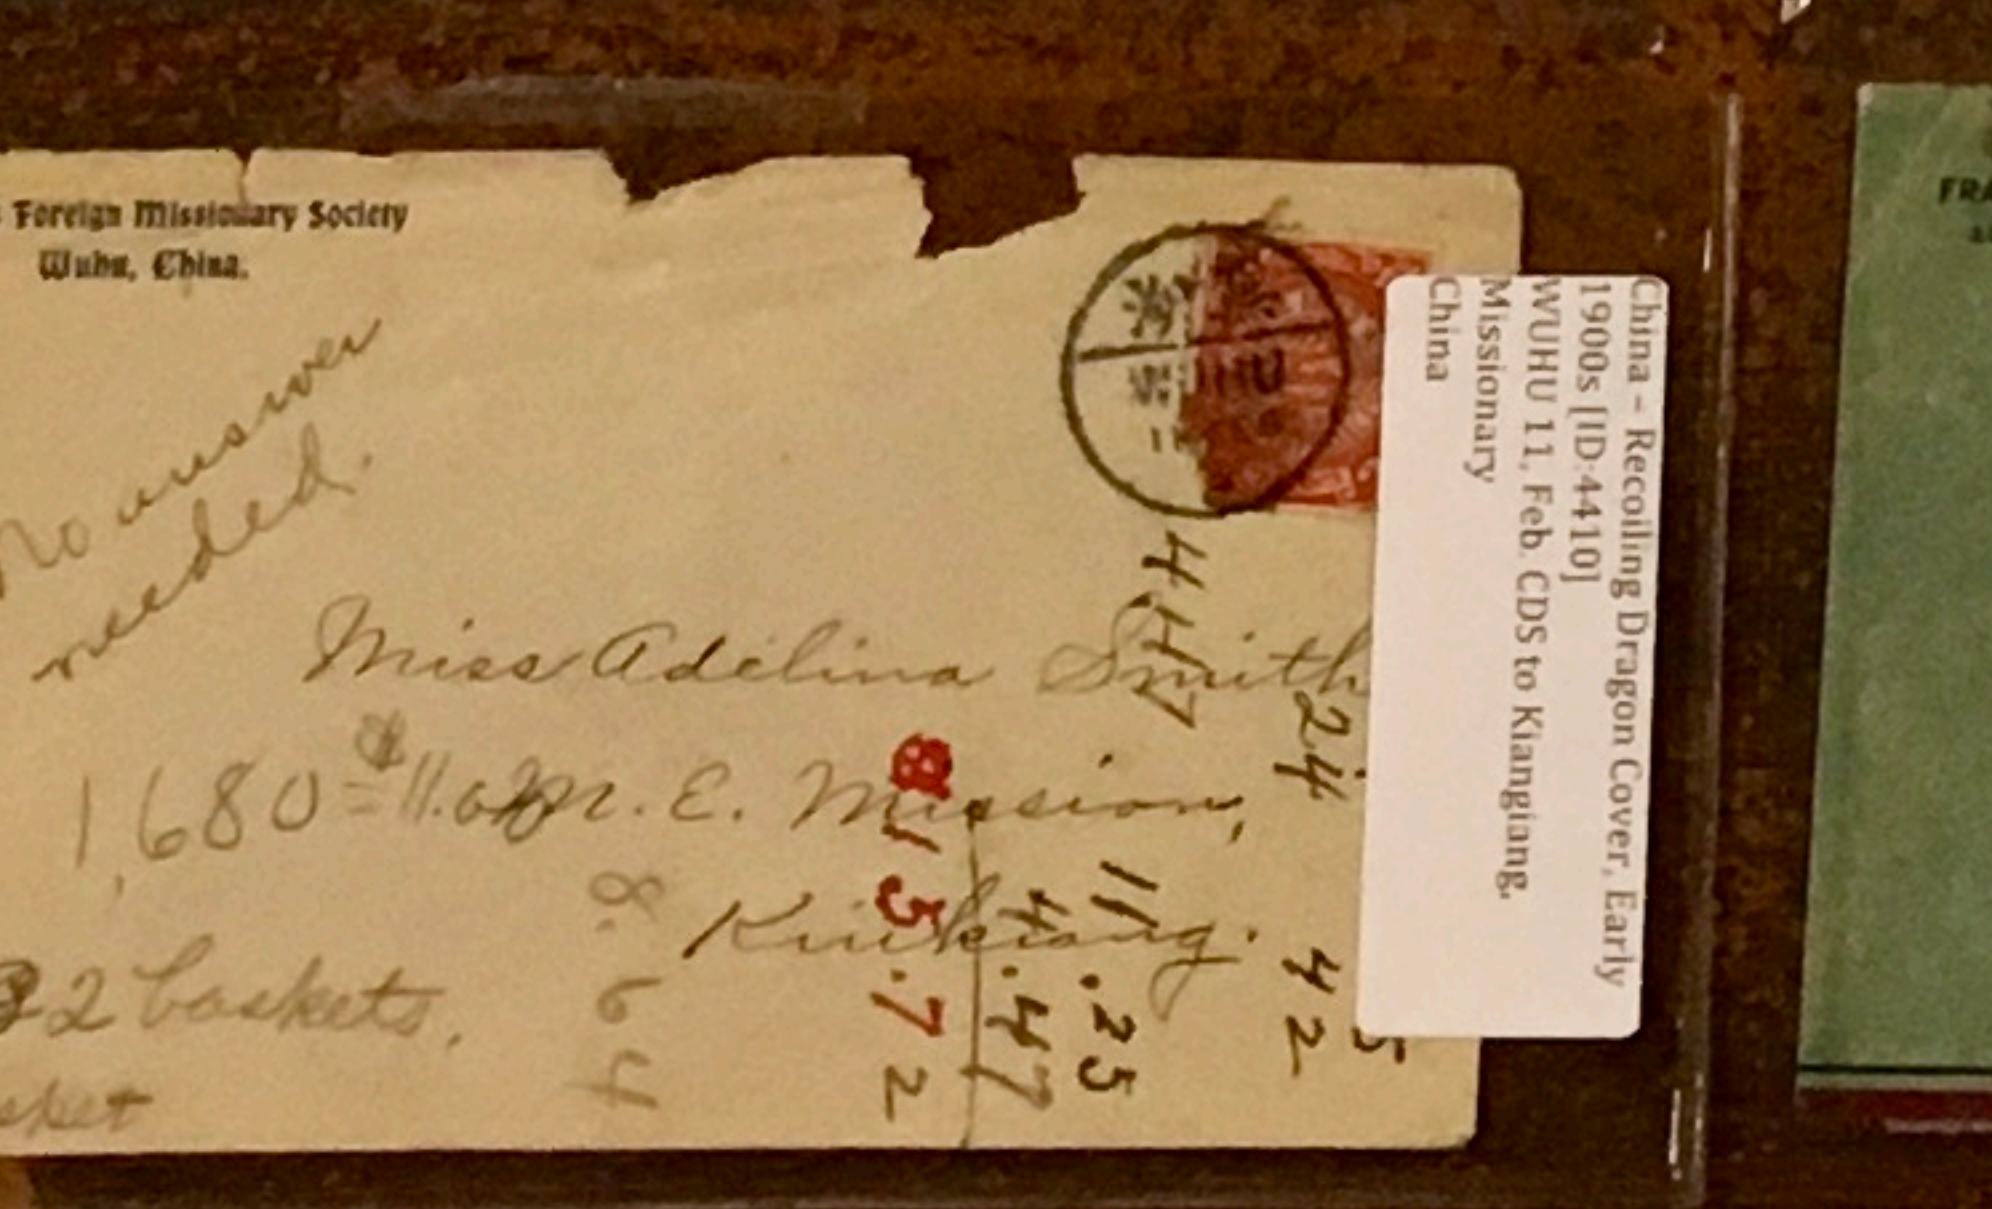 Foreign Missionary Society
Wuhu, China.
No answer
needed.
Miss Adelina Smith
1,680 = $11.00 M. E. Mission,
Kiukiang.
22 baskets.
447
24
42
5
11.25
4.47
815.72
8.64
China – Recoiling Dragon Cover, Early
1900s [ID:4410]
WUHU 11, Feb. CDS to Kiangiang,
Missionary
China
FRA